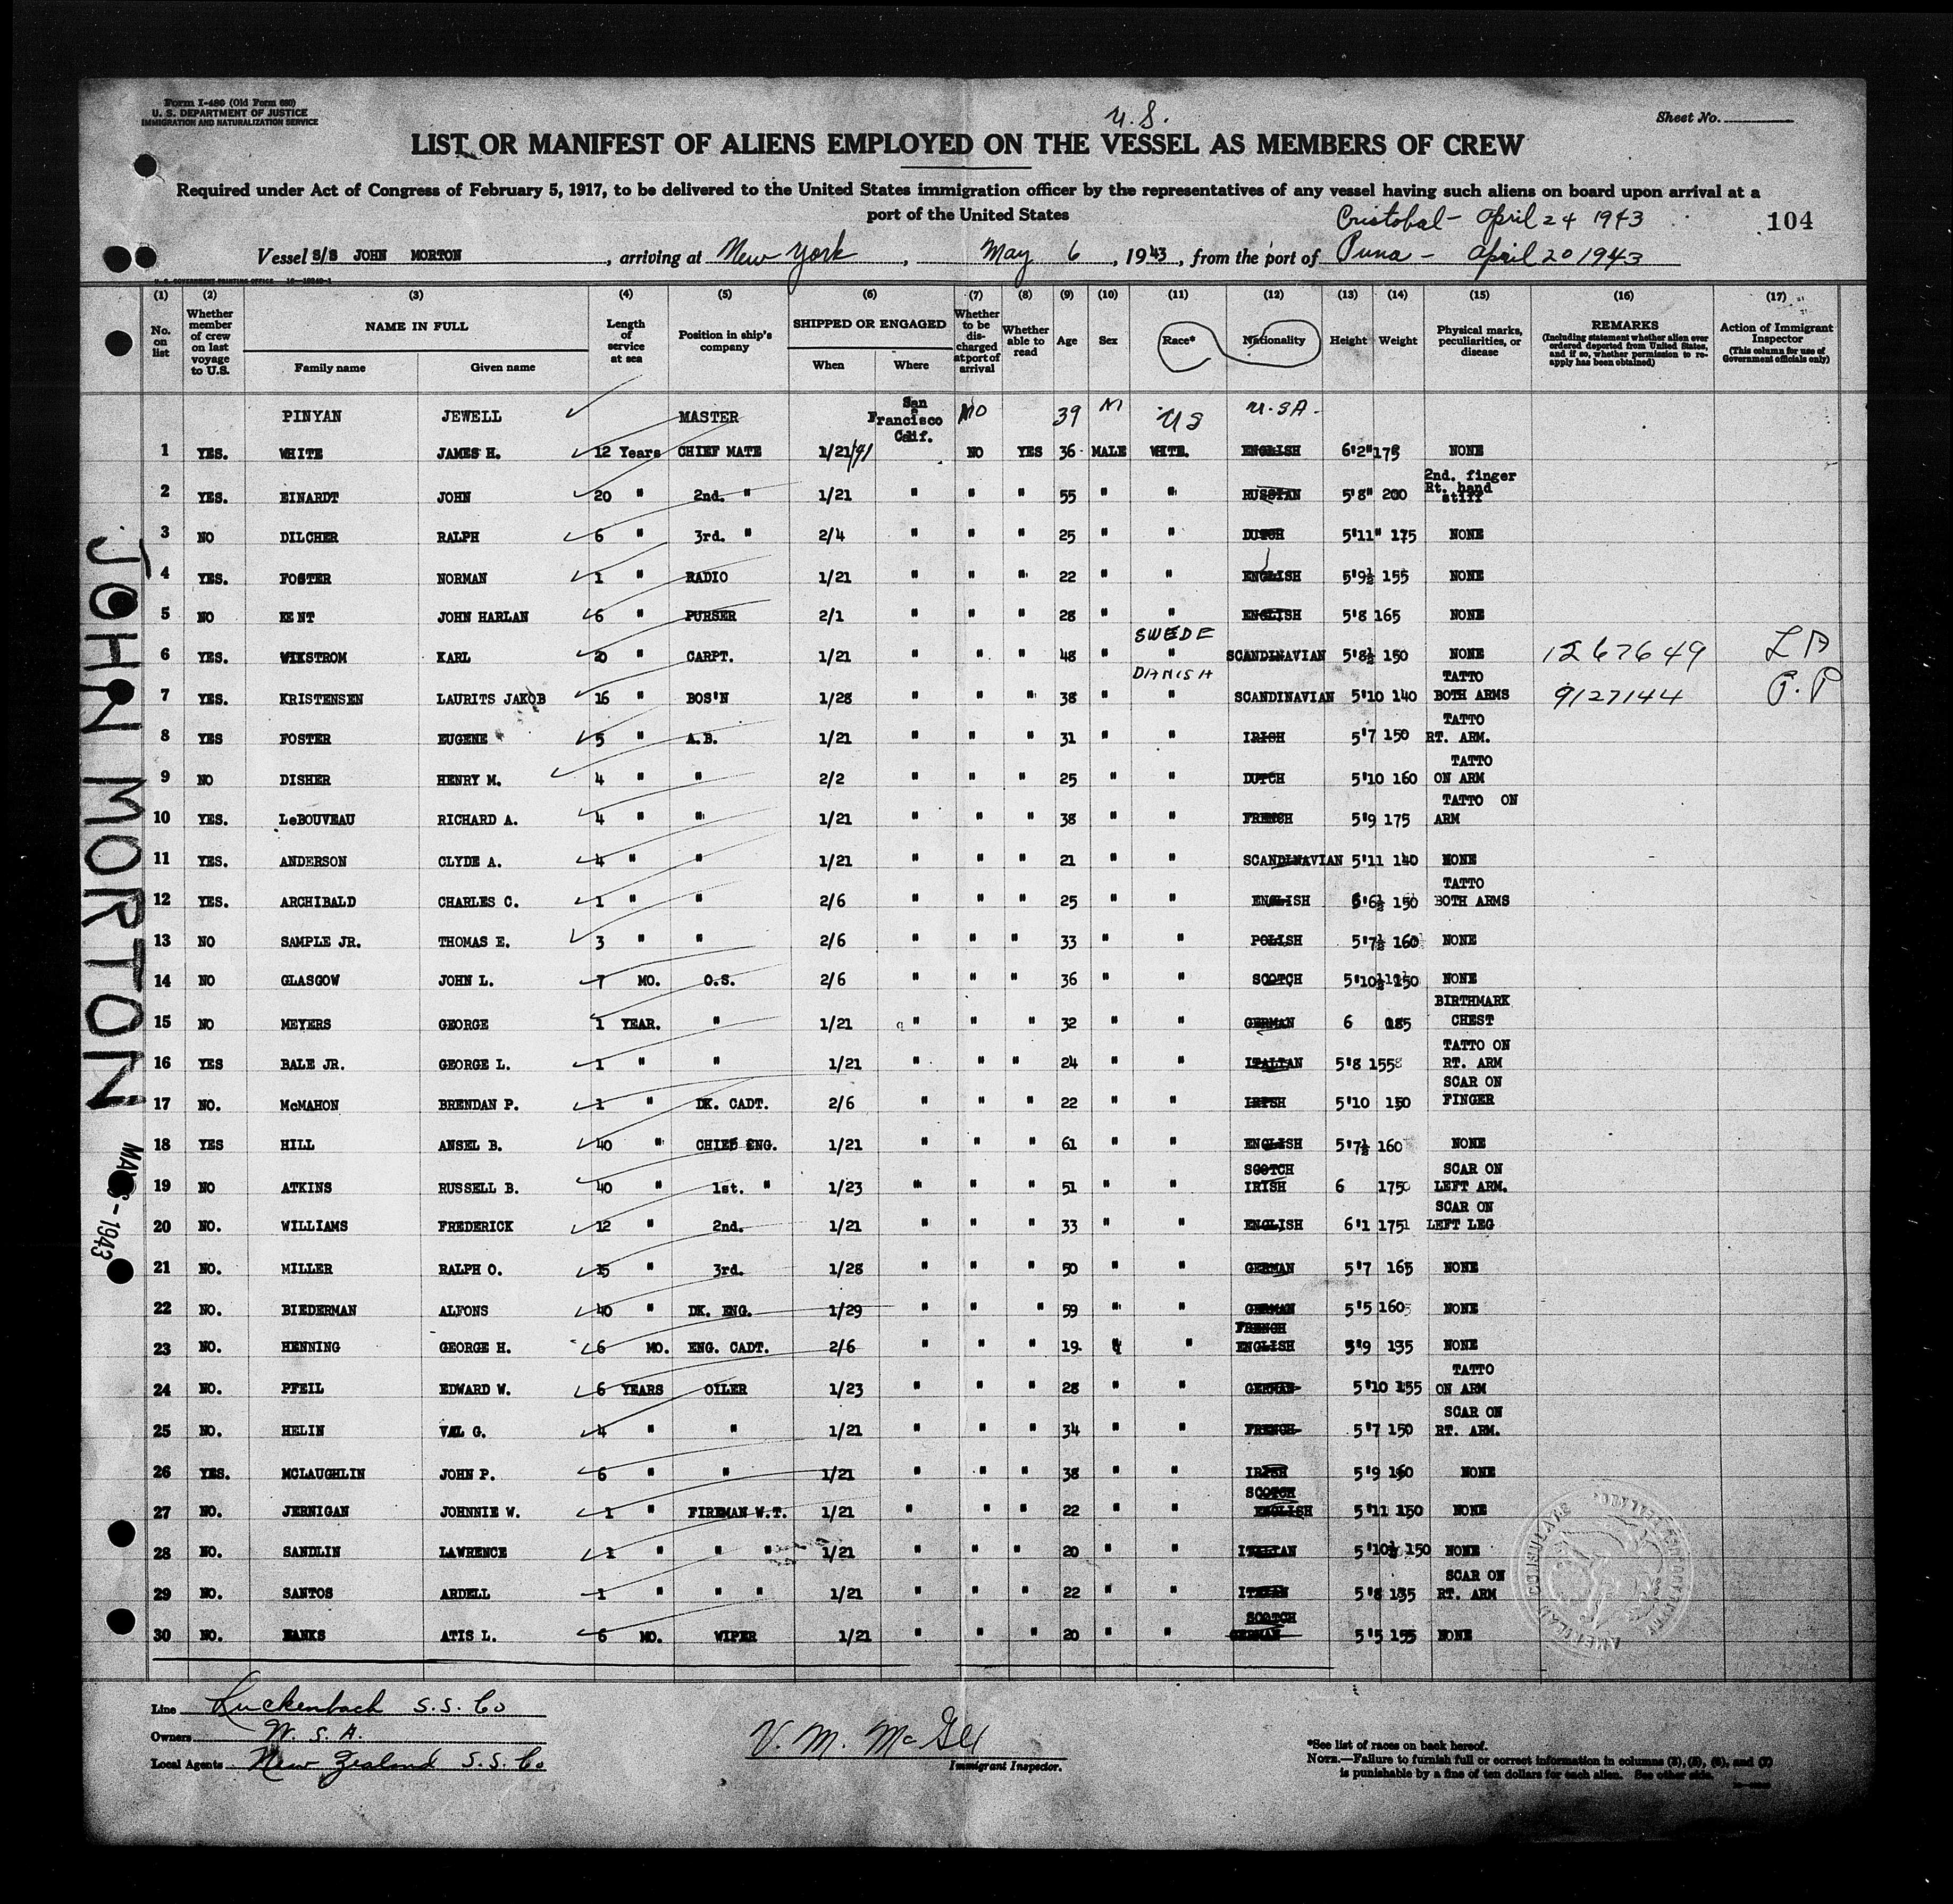 Form I-480 (Old Form 680)
U. S. DEPARTMENT OF JUSTICE
IMMIGRATION AND NATURALIZATION SERVICE
U.S.
Sheet No.
LIST OR MANIFEST OF ALIENS EMPLOYED ON THE VESSEL AS MEMBERS OF CREW
Required under Act of Congress of February 5, 1917, to be delivered to the United States immigration officer by the representatives of any vessel having such aliens on board upon arrival at a
port of the United States
Cristobal - April 24 1943
104
Vessel S/S JOHN MORTON, arriving at New York, May 6, 1943, from the port of Puna - April 20 1943
U. S. GOVERNMENT PRINTING OFFICE
(1) (2) (3) (4) (5) (6) (7) (8) (9) (10) (11) (12) (13) (14) (15) (16) (17)
No. on list
Whether member of crew on last voyage to U.S.
NAME IN FULL
Family name Given name
Length of service at sea
Position in ship's company
SHIPPED OR ENGAGED
When Where
Whether to be discharged at port of arrival
Whether able to read
Age Sex Race* Nationality Height Weight
Physical marks, peculiarities, or disease
REMARKS
(Including statement whether alien ever ordered deported from United States, and if so, whether permission to reapply has been obtained)
Action of Immigrant Inspector
(This column for use of Government officials only)
PINYAN JEWELL MASTER San Francisco Calif. NO 39 M US U.S.A.
1 YES. WHITE JAMES H. 12 Years CHIEF MATE 1/21/41 NO YES 36 MALE WHITE. ENGLISH 6'2" 175 NONE
2 YES. EINARDT JOHN 20 " 2nd. " 1/21 " " " 55 " " RUSSIAN 5'8" 200 2nd. finger Rt. hand stiff
3 NO DILCHER RALPH 6 " 3rd. " 2/4 " " " 25 " " DUTCH 5'11" 175 NONE
4 YES. FOSTER NORMAN 1 " RADIO 1/21 " " " 22 " " ENGLISH 5'9½ 155 NONE
5 NO KENT JOHN HARLAN 6 " PURSER 2/1 " " " 28 " " ENGLISH 5'8 165 NONE
6 YES. WIKSTROM KARL 20 " CARPT. 1/21 " " " 48 " SWEDE " SCANDINAVIAN 5'8½ 150 NONE 1267649
7 YES. KRISTENSEN LAURITS JAKOB 16 " BOS'N 1/28 " " " 38 " DANISH " SCANDINAVIAN 5'10 140 TATTO BOTH ARMS 9127144 P.P
8 YES FOSTER EUGENE 5 " A.B. 1/21 " " " 31 " " IRISH 5'7 150 TATTO RT. ARM.
9 NO DISHER HENRY M. 4 " " 2/2 " " " 25 " " DUTCH 5'10 160 TATTO ON ARM
10 YES. LeBOUVEAU RICHARD A. 4 " " 1/21 " " " 38 " " FRENCH 5'9 175 TATTO ON ARM
11 YES. ANDERSON CLYDE A. 4 " " 1/21 " " " 21 " " SCANDINAVIAN 5'11 140 NONE
12 YES. ARCHIBALD CHARLES C. 1 " " 2/6 " " " 25 " " ENGLISH 5'6½ 150 TATTO BOTH ARMS
13 NO SAMPLE JR. THOMAS E. 3 " " 2/6 " " " 33 " " POLISH 5'7½ 160 NONE
14 NO GLASGOW JOHN L. 7 MO. O.S. 2/6 " " " 36 " " SCOTCH 5'10½ 150 NONE
15 NO MEYERS GEORGE 1 YEAR. " 1/21 " " " 32 " " GERMAN 6 185 BIRTHMARK CHEST
16 YES BALE JR. GEORGE L. 1 " " 1/21 " " " 24 " " ITALIAN 5'8 155 TATTO ON RT. ARM
17 NO. McMAHON BRENDAN P. 1 " DK. CADT. 2/6 " " " 22 " " IRISH 5'10 150 SCAR ON FINGER
18 YES HILL ANSEL B. 40 " CHIEF ENG. 1/21 " " " 61 " " ENGLISH 5'7½ 160 NONE
19 NO ATKINS RUSSELL B. 40 " 1st. " 1/23 " " " 51 " " SCOTCH IRISH 6 175 SCAR ON LEFT ARM.
20 NO. WILLIAMS FREDERICK 12 " 2nd. 1/21 " " " 33 " " ENGLISH 6'1 175 SCAR ON LEFT LEG
21 NO. MILLER RALPH O. 15 " 3rd. 1/28 " " " 50 " " GERMAN 5'7 165 NONE
22 NO. BIEDERMAN ALFONS 40 " DK. ENG. 1/29 " " " 59 " " GERMAN 5'5 160 NONE
23 NO. HENNING GEORGE H. 6 MO. ENG. CADT. 2/6 " " " 19 " " FRENCH ENGLISH 5'9 135 NONE
24 NO. PFEIL EDWARD W. 6 YEARS OILER 1/23 " " " 28 " " GERMAN 5'10 155 TATTO ON ARM
25 NO. HELIN VAL G. 4 " " 1/21 " " " 34 " " FRENCH 5'7 150 SCAR ON RT. ARM.
26 YES. MCLAUGHLIN JOHN P. 6 " " 1/21 " " " 38 " " IRISH 5'9 160 NONE
27 NO. JERNIGAN JOHNNIE W. 1 " FIREMAN W.T. 1/21 " " " 22 " " SCOTCH ENGLISH 5'11 150 NONE
28 NO. SANDLIN LAWRENCE 1 " " " 1/21 " " " 20 " " ITALIAN 5'10½ 150 NONE
29 NO. SANTOS ARDELL 1 " " " 1/21 " " " 22 " " ITALIAN 5'8 135 SCAR ON RT. ARM
30 NO. BANKS ATIS L. 6 MO. WIPER 1/21 " " " 20 " " SCOTCH GERMAN 5'5 155 NONE
JOHN MORTON
MAY 6 - 1943
AMERICAN CONSULATE
Line Luckenbach S.S. Co
Owners W. S. A.
Local Agents New Zealand S.S. Co
V. M. McGee
Immigrant Inspector.
*See list of races on back hereof.
NOTE.—Failure to furnish full or correct information in columns (3), (5), (6), and (7)
is punishable by a fine of ten dollars for each alien. See other side.